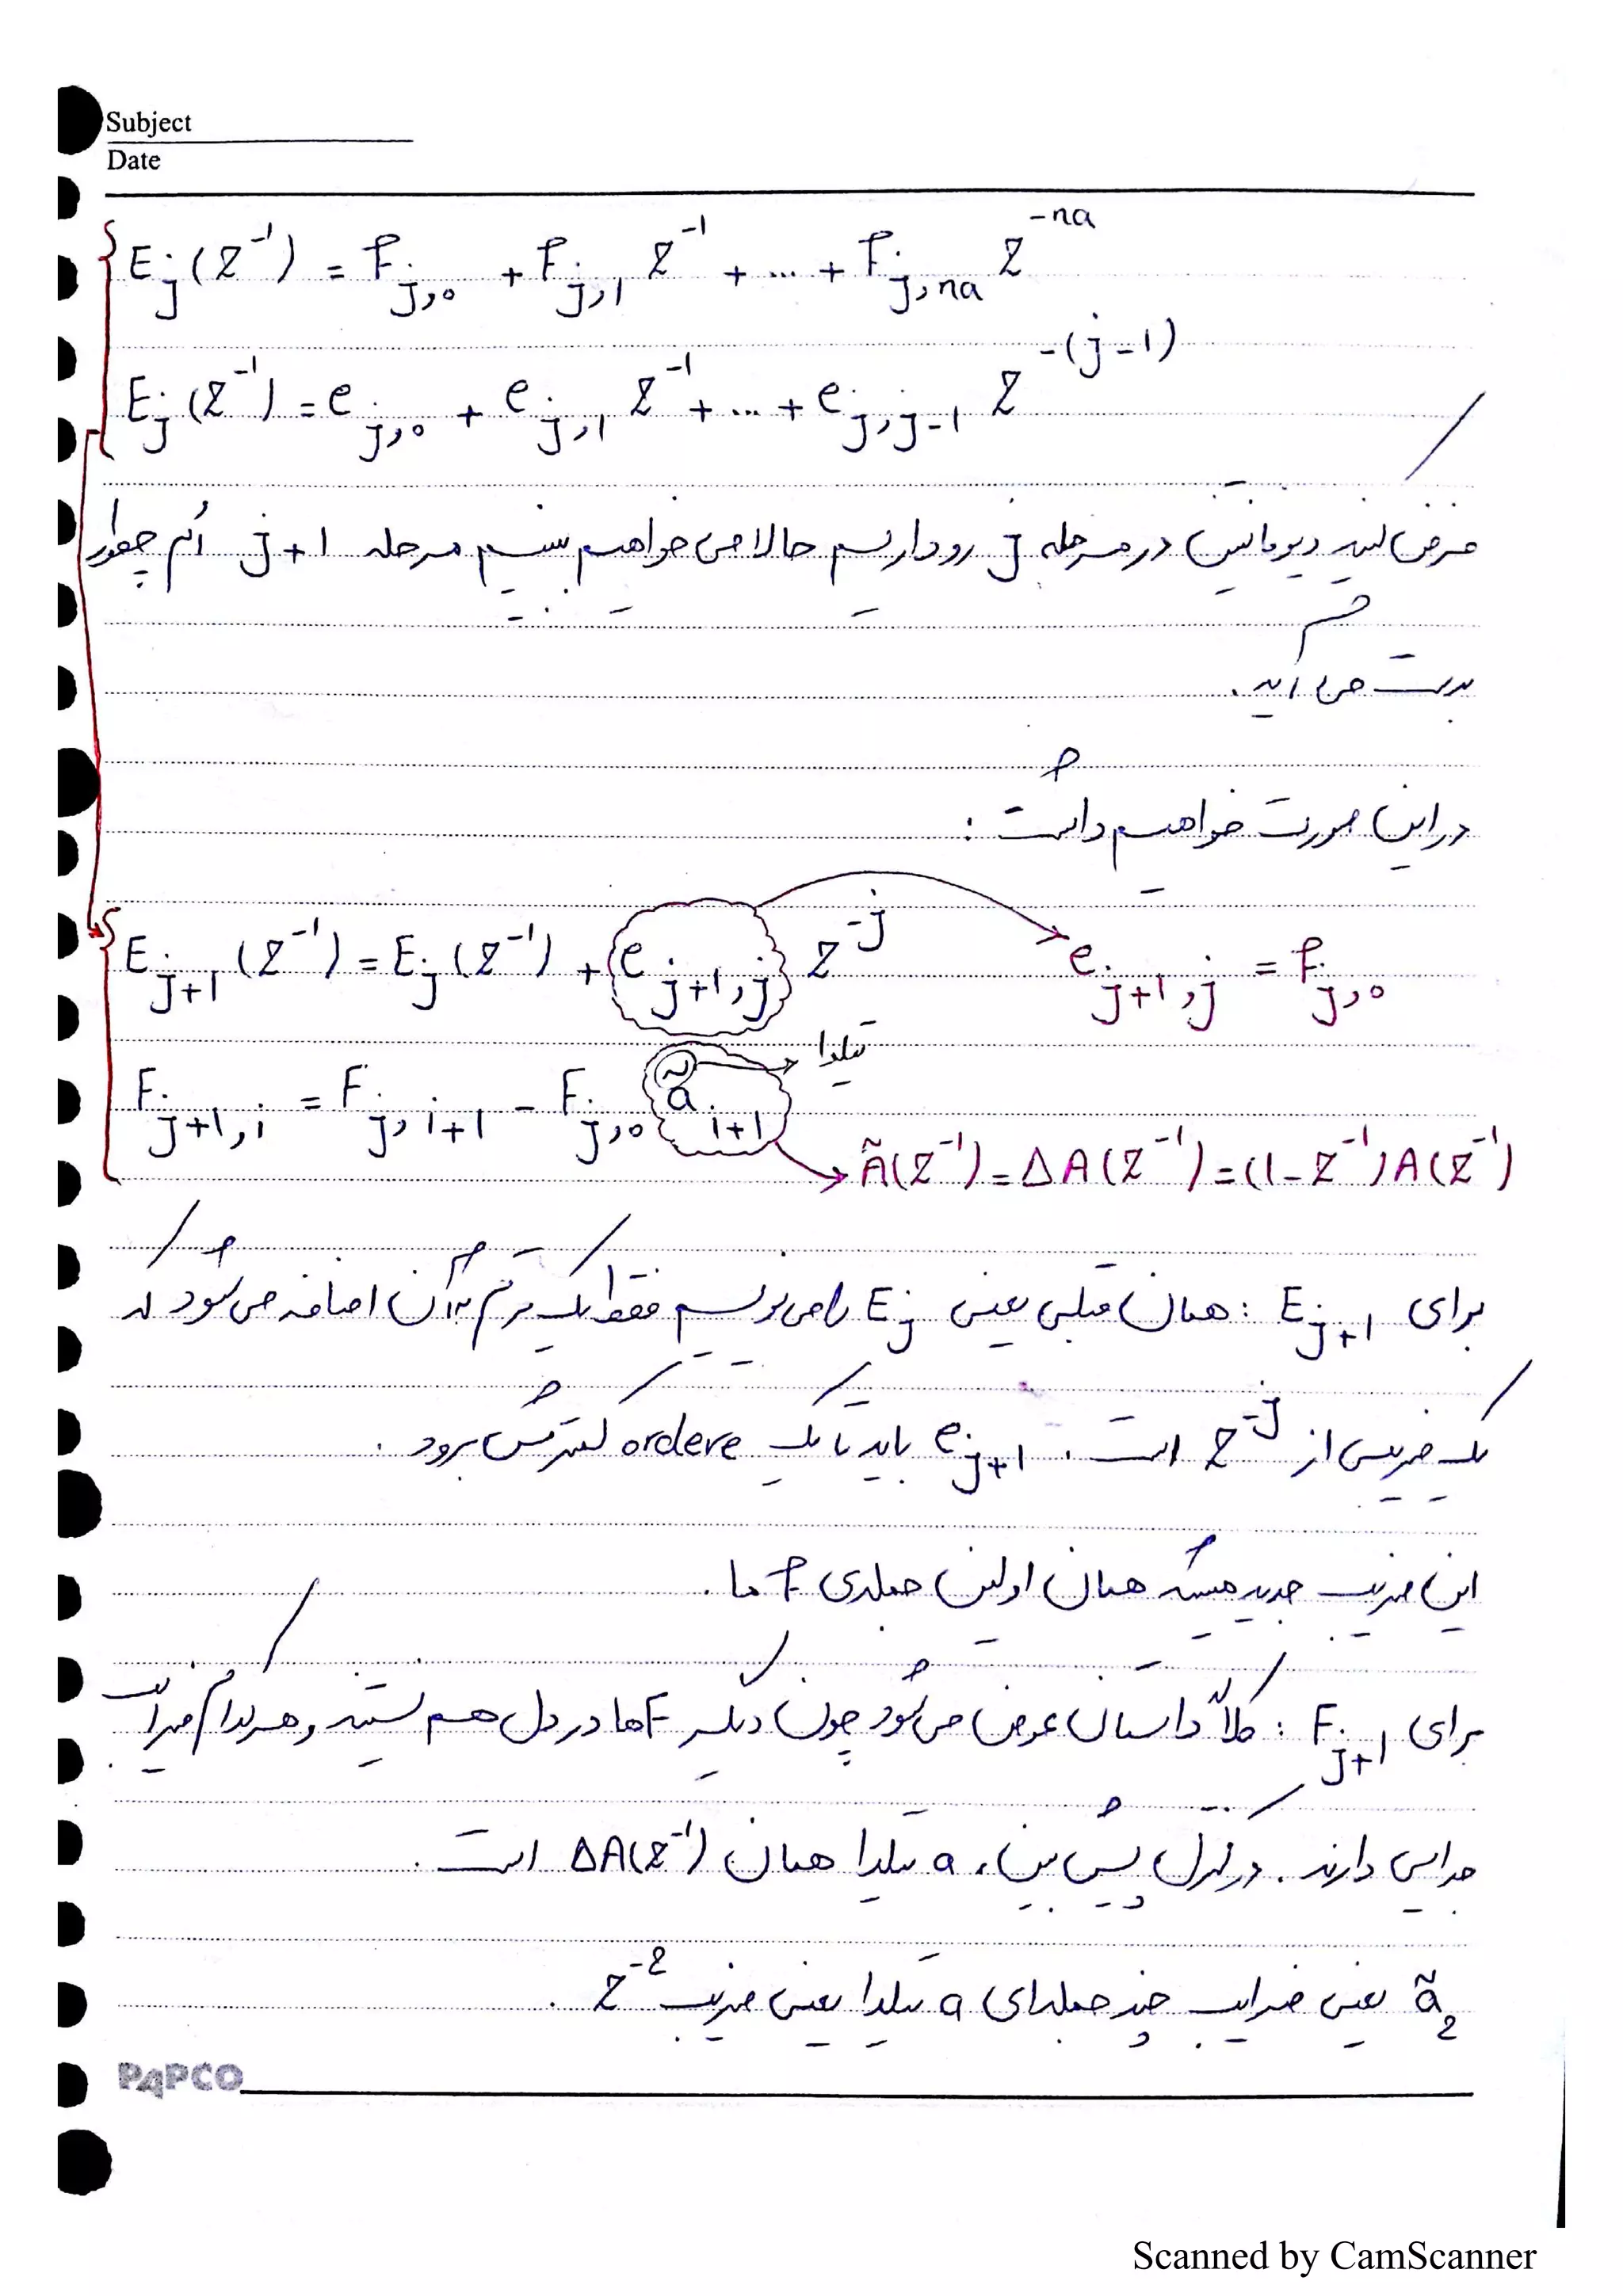 Subject
Date
E_j(Z^-1) = F_j,0 + F_j,1 Z^-1 + ... + F_j,na Z^-na
E_j(Z^-1) = e_j,0 + e_j,1 Z^-1 + ... + e_j,j-1 Z^-(j-1)
فرض کنید دیوفانتین در مرحله j رو داریم حالا می خواهیم ببینیم مرحله j+1 اُم چطور
بدست می آید.
در این صورت خواهیم داشت :
E_j+1(Z^-1) = E_j(Z^-1) + e_j+1,j Z^-j → e_j+1,j = F_j,0
تیلدا
F_j+1,i = F_j,i+1 - F_j,0 ã_i+1
Ã(Z^-1) = ΔA(Z^-1) = (1-Z^-1)A(Z^-1)
برای E_j+1 : همان قبلی یعنی E_j را می نویسیم فقط یک ترم به آن اضافه می شود که
یک ضریبی از Z^-j است . e_j+1 باید تا یک ordere کمترش برود .
این ضریب جدید میشه همان اولین جمله ی F ما .
برای F_j+1 : کلاً داستان عوض می شود چون دیگر Fها در دل هم نیستند و هر کدام ضرایب
جدایی دارند . در کنترل پیش بین، a تیلدا همان ΔA(Z^-1) است .
ã_2 یعنی ضرایب چند جمله ای a تیلدا یعنی ضریب Z^-2 .
PAPCO
Scanned by CamScanner